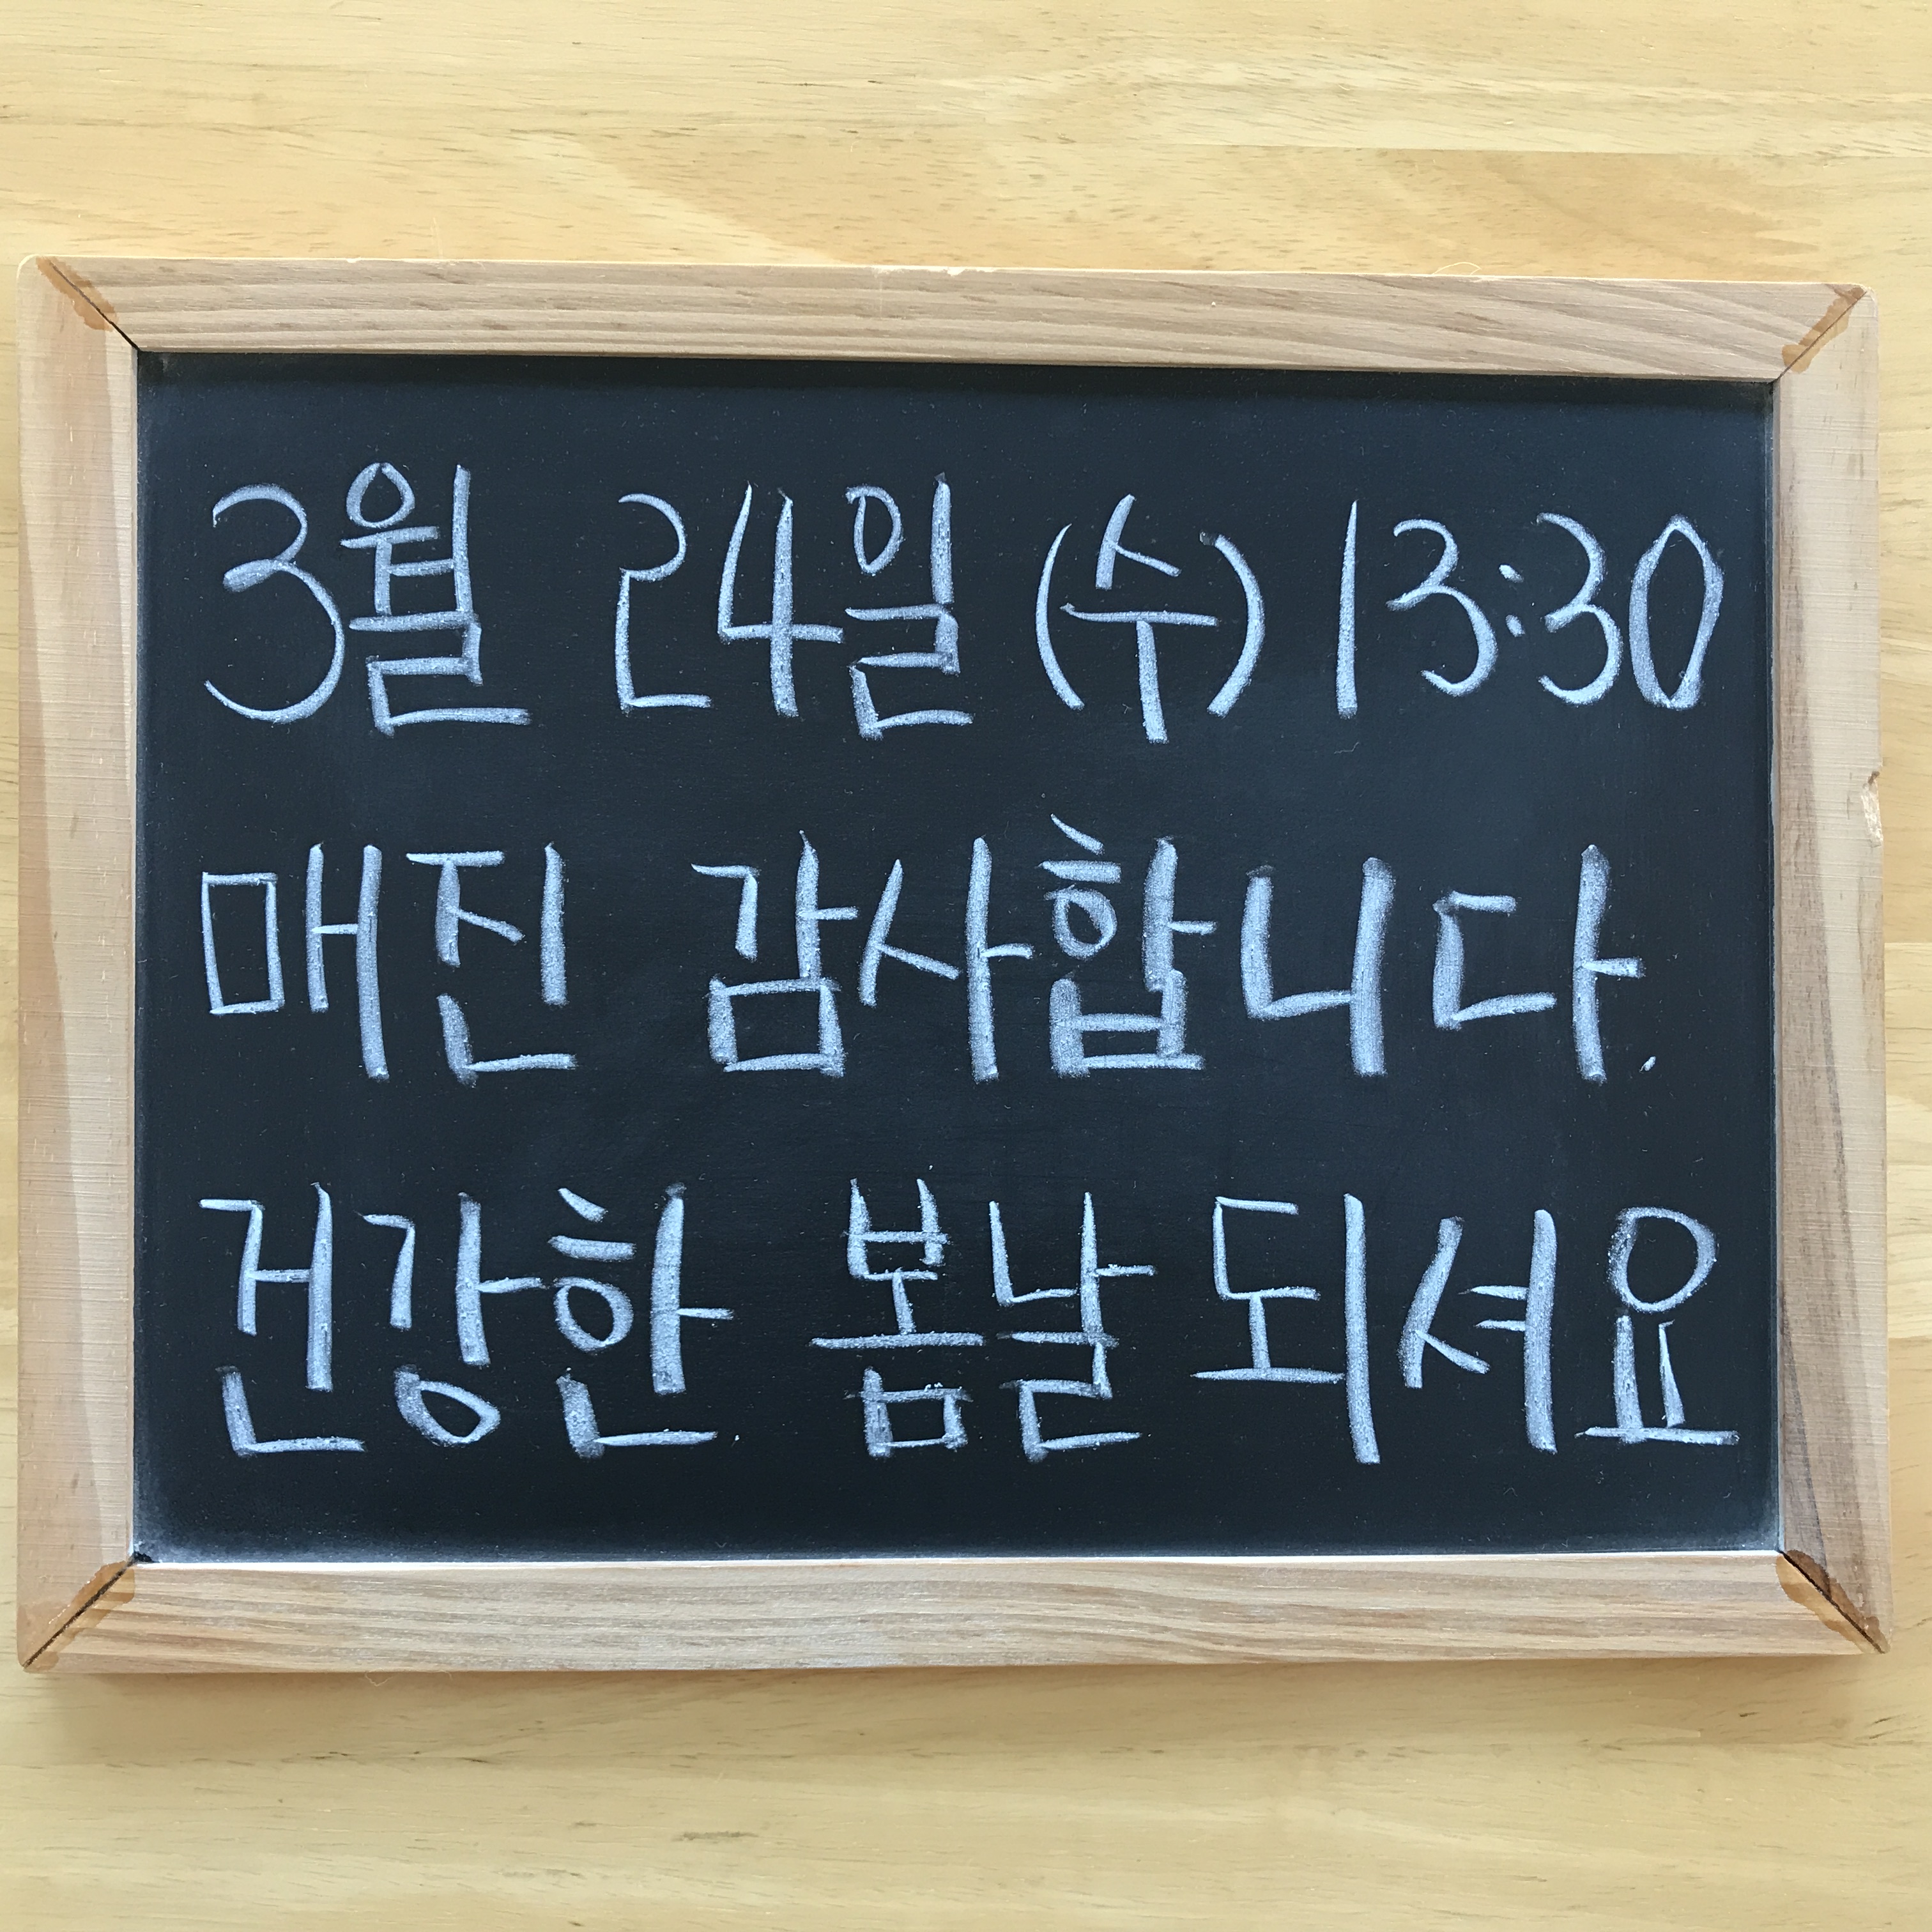 3월 24일 (수) 13:30
매진 감사합니다.
건강한 봄날 되셔요